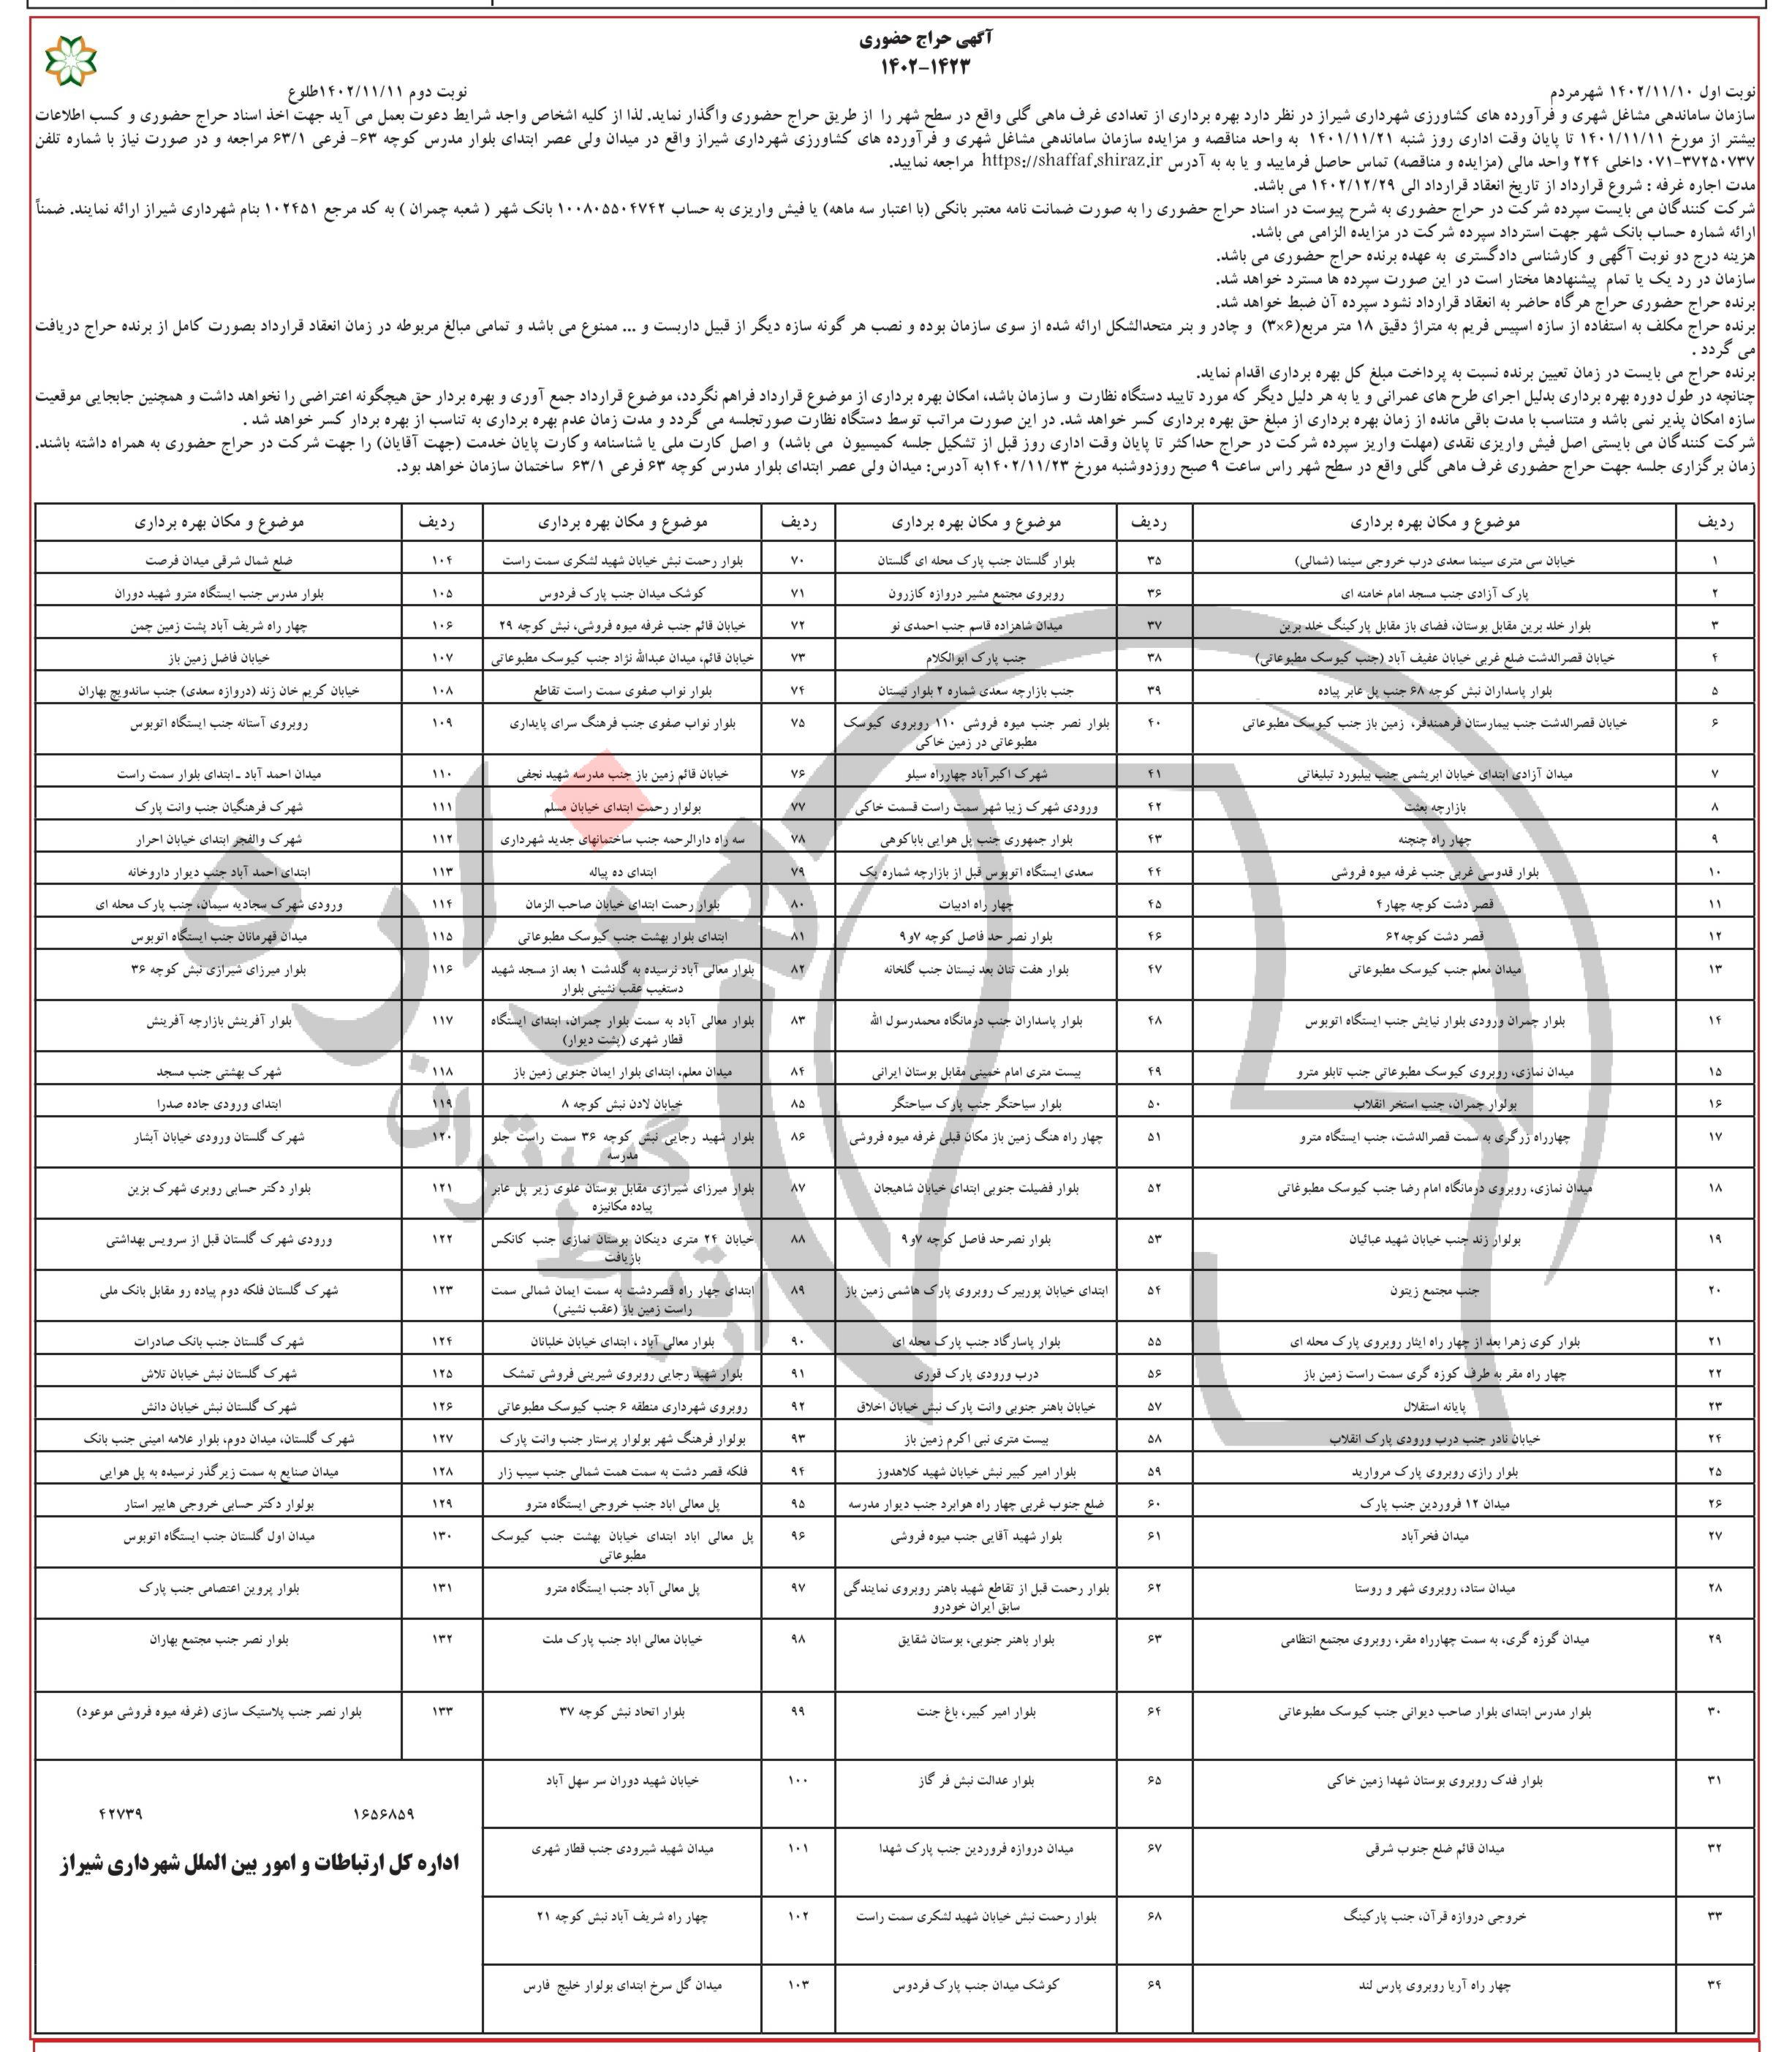 آگهی حراج حضوری
۱۴۰۲-۱۴۲۳
نوبت اول ۱۴۰۲/۱۱/۱۰ شهرمردم
نوبت دوم ۱۴۰۲/۱۱/۱۱طلوع
سازمان ساماندهی مشاغل شهری و فرآورده های کشاورزی شهرداری شیراز در نظر دارد بهره برداری از تعدادی غرف ماهی گلی واقع در سطح شهر را از طریق حراج حضوری واگذار نماید. لذا از کلیه اشخاص واجد شرایط دعوت بعمل می آید جهت اخذ اسناد حراج حضوری و کسب اطلاعات
بیشتر از مورخ ۱۴۰۱/۱۱/۱۱ تا پایان وقت اداری روز شنبه ۱۴۰۱/۱۱/۲۱ به واحد مناقصه و مزایده سازمان ساماندهی مشاغل شهری و فرآورده های کشاورزی شهرداری شیراز واقع در میدان ولی عصر ابتدای بلوار مدرس کوچه ۶۳- فرعی ۶۳/۱ مراجعه و در صورت نیاز با شماره تلفن
۰۷۱-۳۷۲۵۰۷۳۷ داخلی ۲۲۴ واحد مالی (مزایده و مناقصه) تماس حاصل فرمایید و یا به به آدرس https://shaffaf.shiraz.ir مراجعه نمایید.
مدت اجاره غرفه : شروع قرارداد از تاریخ انعقاد قرارداد الی ۱۴۰۲/۱۲/۲۹ می باشد.
شرکت کنندگان می بایست سپرده شرکت در حراج حضوری به شرح پیوست در اسناد حراج حضوری را به صورت ضمانت نامه معتبر بانکی (با اعتبار سه ماهه) یا فیش واریزی به حساب ۱۰۰۸۰۵۵۰۴۷۴۲ بانک شهر ( شعبه چمران ) به کد مرجع ۱۰۲۴۵۱ بنام شهرداری شیراز ارائه نمایند. ضمناً
ارائه شماره حساب بانک شهر جهت استرداد سپرده شرکت در مزایده الزامی می باشد.
هزینه درج دو نوبت آگهی و کارشناسی دادگستری به عهده برنده حراج حضوری می باشد.
سازمان در رد یک یا تمام پیشنهادها مختار است در این صورت سپرده ها مسترد خواهد شد.
برنده حراج حضوری حراج هرگاه حاضر به انعقاد قرارداد نشود سپرده آن ضبط خواهد شد.
برنده حراج مکلف به استفاده از سازه اسپیس فریم به متراژ دقیق ۱۸ متر مربع(۶×۳) و چادر و بنر متحدالشکل ارائه شده از سوی سازمان بوده و نصب هر گونه سازه دیگر از قبیل داربست و ... ممنوع می باشد و تمامی مبالغ مربوطه در زمان انعقاد قرارداد بصورت کامل از برنده حراج دریافت
می گردد .
برنده حراج می بایست در زمان تعیین برنده نسبت به پرداخت مبلغ کل بهره برداری اقدام نماید.
چنانچه در طول دوره بهره برداری بدلیل اجرای طرح های عمرانی و یا به هر دلیل دیگر که مورد تایید دستگاه نظارت و سازمان باشد، امکان بهره برداری از موضوع قرارداد فراهم نگردد، موضوع قرارداد جمع آوری و بهره بردار حق هیچگونه اعتراضی را نخواهد داشت و همچنین جابجایی موقعیت
سازه امکان پذیر نمی باشد و متناسب با مدت باقی مانده از زمان بهره برداری از مبلغ حق بهره برداری کسر خواهد شد. در این صورت مراتب توسط دستگاه نظارت صورتجلسه می گردد و مدت زمان عدم بهره برداری به تناسب از بهره بردار کسر خواهد شد .
شرکت کنندگان می بایستی اصل فیش واریزی نقدی (مهلت واریز سپرده شرکت در حراج حداکثر تا پایان وقت اداری روز قبل از تشکیل جلسه کمیسیون می باشد) و اصل کارت ملی یا شناسنامه وکارت پایان خدمت (جهت آقایان) را جهت شرکت در حراج حضوری به همراه داشته باشند.
زمان برگزاری جلسه جهت حراج حضوری غرف ماهی گلی واقع در سطح شهر راس ساعت ۹ صبح روزدوشنبه مورخ ۱۴۰۲/۱۱/۲۳به آدرس: میدان ولی عصر ابتدای بلوار مدرس کوچه ۶۳ فرعی ۶۳/۱ ساختمان سازمان خواهد بود.
ردیف موضوع و مکان بهره برداری ردیف موضوع و مکان بهره برداری ردیف موضوع و مکان بهره برداری ردیف موضوع و مکان بهره برداری
۱ خیابان سی متری سینما سعدی درب خروجی سینما (شمالی) ۳۵ بلوار گلستان جنب پارک محله ای گلستان ۷۰ بلوار رحمت نبش خیابان شهید لشکری سمت راست ۱۰۴ ضلع شمال شرقی میدان فرصت
۲ پارک آزادی جنب مسجد امام خامنه ای ۳۶ روبروی مجتمع مشیر دروازه کازرون ۷۱ کوشک میدان جنب پارک فردوس ۱۰۵ بلوار مدرس جنب ایستگاه مترو شهید دوران
۳ بلوار خلد برین مقابل بوستان، فضای باز مقابل پارکینگ خلد برین ۳۷ میدان شاهزاده قاسم جنب احمدی نو ۷۲ خیابان قائم جنب غرفه میوه فروشی، نبش کوچه ۲۹ ۱۰۶ چهار راه شریف آباد پشت زمین چمن
۴ خیابان قصرالدشت ضلع غربی خیابان عفیف آباد (جنب کیوسک مطبوعاتی) ۳۸ جنب پارک ابوالکلام ۷۳ خیابان قائم، میدان عبدالله نژاد جنب کیوسک مطبوعاتی ۱۰۷ خیابان فاضل زمین باز
۵ بلوار پاسداران نبش کوچه ۶۸ جنب پل عابر پیاده ۳۹ جنب بازارچه سعدی شماره ۲ بلوار نیستان ۷۴ بلوار نواب صفوی سمت راست تقاطع ۱۰۸ خیابان کریم خان زند (دروازه سعدی) جنب ساندویچ بهاران
۶ خیابان قصرالدشت جنب بیمارستان فرهمندفر، زمین باز جنب کیوسک مطبوعاتی ۴۰ بلوار نصر جنب میوه فروشی ۱۱۰ روبروی کیوسک ۷۵ بلوار نواب صفوی جنب فرهنگ سرای پایداری ۱۰۹ روبروی آستانه جنب ایستگاه اتوبوس
مطبوعاتی در زمین خاکی
۷ میدان آزادی ابتدای خیابان ابریشمی جنب بیلبورد تبلیغاتی ۴۱ شهرک اکبرآباد چهارراه سیلو ۷۶ خیابان قائم زمین باز جنب مدرسه شهید نجفی ۱۱۰ میدان احمد آباد ـ ابتدای بلوار سمت راست
۸ بازارچه بعثت ۴۲ ورودی شهرک زیبا شهر سمت راست قسمت خاکی ۷۷ بولوار رحمت ابتدای خیابان مسلم ۱۱۱ شهرک فرهنگیان جنب وانت پارک
۹ چهار راه چنچنه ۴۳ بلوار جمهوری جنب پل هوایی باباکوهی ۷۸ سه راه دارالرحمه جنب ساختمانهای جدید شهرداری ۱۱۲ شهرک والفجر ابتدای خیابان احرار
۱۰ بلوار قدوسی غربی جنب غرفه میوه فروشی ۴۴ سعدی ایستگاه اتوبوس قبل از بازارچه شماره یک ۷۹ ابتدای ده پیاله ۱۱۳ ابتدای احمد آباد جنب دیوار داروخانه
۱۱ قصر دشت کوچه چهار۴ ۴۵ چهار راه ادبیات ۸۰ بلوار رحمت ابتدای خیابان صاحب الزمان ۱۱۴ ورودی شهرک سجادیه سیمان، جنب پارک محله ای
۱۲ قصر دشت کوچه۶۲ ۴۶ بلوار نصر حد فاصل کوچه ۷و۹ ۸۱ ابتدای بلوار بهشت جنب کیوسک مطبوعاتی ۱۱۵ میدان قهرمانان جنب ایستگاه اتوبوس
۱۳ میدان معلم جنب کیوسک مطبوعاتی ۴۷ بلوار هفت تنان بعد نیستان جنب گلخانه ۸۲ بلوار معالی آباد نرسیده به گلدشت ۱ بعد از مسجد شهید ۱۱۶ بلوار میرزای شیرازی نبش کوچه ۳۶
دستغیب عقب نشینی بلوار
۱۴ بلوار چمران ورودی بلوار نیایش جنب ایستگاه اتوبوس ۴۸ بلوار پاسداران جنب درمانگاه محمدرسول الله ۸۳ بلوار معالی آباد به سمت بلوار چمران، ابتدای ایستگاه ۱۱۷ بلوار آفرینش بازارچه آفرینش
قطار شهری (پشت دیوار)
۱۵ میدان نمازی، روبروی کیوسک مطبوعاتی جنب تابلو مترو ۴۹ بیست متری امام خمینی مقابل بوستان ایرانی ۸۴ میدان معلم، ابتدای بلوار ایمان جنوبی زمین باز ۱۱۸ شهرک بهشتی جنب مسجد
۱۶ بولوار چمران، جنب استخر انقلاب ۵۰ بلوار سیاحتگر جنب پارک سیاحتگر ۸۵ خیابان لادن نبش کوچه ۸ ۱۱۹ ابتدای ورودی جاده صدرا
۱۷ چهارراه زرگری به سمت قصرالدشت، جنب ایستگاه مترو ۵۱ چهار راه هنگ زمین باز مکان قبلی غرفه میوه فروشی ۸۶ بلوار شهید رجایی نبش کوچه ۳۶ سمت راست جلو ۱۲۰ شهرک گلستان ورودی خیابان آبشار
مدرسه
۱۸ میدان نمازی، روبروی درمانگاه امام رضا جنب کیوسک مطبوغاتی ۵۲ بلوار فضیلت جنوبی ابتدای خیابان شاهیجان ۸۷ بلوار میرزای شیرازی مقابل بوستان علوی زیر پل عابر ۱۲۱ بلوار دکتر حسابی روبری شهرک بزین
پیاده مکانیزه
۱۹ بولوار زند جنب خیابان شهید عبائیان ۵۳ بلوار نصرحد فاصل کوچه ۷و۹ ۸۸ خیابان ۲۴ متری دینکان بوستان نمازی جنب کانکس ۱۲۲ ورودی شهرک گلستان قبل از سرویس بهداشتی
بازیافت
۲۰ جنب مجتمع زیتون ۵۴ ابتدای خیابان پوربیرک روبروی پارک هاشمی زمین باز ۸۹ ابتدای چهار راه قصردشت به سمت ایمان شمالی سمت ۱۲۳ شهرک گلستان فلکه دوم پیاده رو مقابل بانک ملی
راست زمین باز (عقب نشینی)
۲۱ بلوار کوی زهرا بعد از چهار راه ایثار روبروی پارک محله ای ۵۵ بلوار پاسارگاد جنب پارک محله ای ۹۰ بلوار معالی آباد ، ابتدای خیابان خلبانان ۱۲۴ شهرک گلستان جنب بانک صادرات
۲۲ چهار راه مقر به طرف کوزه گری سمت راست زمین باز ۵۶ درب ورودی پارک قوری ۹۱ بلوار شهید رجایی روبروی شیرینی فروشی تمشک ۱۲۵ شهرک گلستان نبش خیابان تلاش
۲۳ پایانه استقلال ۵۷ خیابان باهنر جنوبی وانت پارک نبش خیابان اخلاق ۹۲ روبروی شهرداری منطقه ۶ جنب کیوسک مطبوعاتی ۱۲۶ شهرک گلستان نبش خیابان دانش
۲۴ خیابان نادر جنب درب ورودی پارک انقلاب ۵۸ بیست متری نبی اکرم زمین باز ۹۳ بولوار فرهنگ شهر بولوار پرستار جنب وانت پارک ۱۲۷ شهرک گلستان، میدان دوم، بلوار علامه امینی جنب بانک
۲۵ بلوار رازی روبروی پارک مروارید ۵۹ بلوار امیر کبیر نبش خیابان شهید کلاهدوز ۹۴ فلکه قصر دشت به سمت همت شمالی جنب سیب زار ۱۲۸ میدان صنایع به سمت زیرگذر نرسیده به پل هوایی
۲۶ میدان ۱۲ فروردین جنب پارک ۶۰ ضلع جنوب غربی چهار راه هوابرد جنب دیوار مدرسه ۹۵ پل معالی اباد جنب خروجی ایستگاه مترو ۱۲۹ بولوار دکتر حسابی خروجی هایپر استار
۲۷ میدان فخرآباد ۶۱ بلوار شهید آقایی جنب میوه فروشی ۹۶ پل معالی اباد ابتدای خیابان بهشت جنب کیوسک ۱۳۰ میدان اول گلستان جنب ایستگاه اتوبوس
مطبوعاتی
۲۸ میدان ستاد، روبروی شهر و روستا ۶۲ بلوار رحمت قبل از تقاطع شهید باهنر روبروی نمایندگی ۹۷ پل معالی آباد جنب ایستگاه مترو ۱۳۱ بلوار پروین اعتصامی جنب پارک
سابق ایران خودرو
۲۹ میدان گوزه گری، به سمت چهارراه مقر، روبروی مجتمع انتظامی ۶۳ بلوار باهنر جنوبی، بوستان شقایق ۹۸ خیابان معالی اباد جنب پارک ملت ۱۳۲ بلوار نصر جنب مجتمع بهاران
۳۰ بلوار مدرس ابتدای بلوار صاحب دیوانی جنب کیوسک مطبوعاتی ۶۴ بلوار امیر کبیر، باغ جنت ۹۹ بلوار اتحاد نبش کوچه ۳۷ ۱۳۳ بلوار نصر جنب پلاستیک سازی (غرفه میوه فروشی موعود)
۳۱ بلوار فدک روبروی بوستان شهدا زمین خاکی ۶۵ بلوار عدالت نبش فر گاز ۱۰۰ خیابان شهید دوران سر سهل آباد
۳۲ میدان قائم ضلع جنوب شرقی ۶۷ میدان دروازه فروردین جنب پارک شهدا ۱۰۱ میدان شهید شیرودی جنب قطار شهری
۳۳ خروجی دروازه قرآن، جنب پارکینگ ۶۸ بلوار رحمت نبش خیابان شهید لشکری سمت راست ۱۰۲ چهار راه شریف آباد نبش کوچه ۲۱
۳۴ چهار راه آریا روبروی پارس لند ۶۹ کوشک میدان جنب پارک فردوس ۱۰۳ میدان گل سرخ ابتدای بولوار خلیج فارس
۱۶۵۶۸۵۹ ۴۲۷۳۹
اداره کل ارتباطات و امور بین الملل شهرداری شیراز
هزاره
گستران
ارتباط